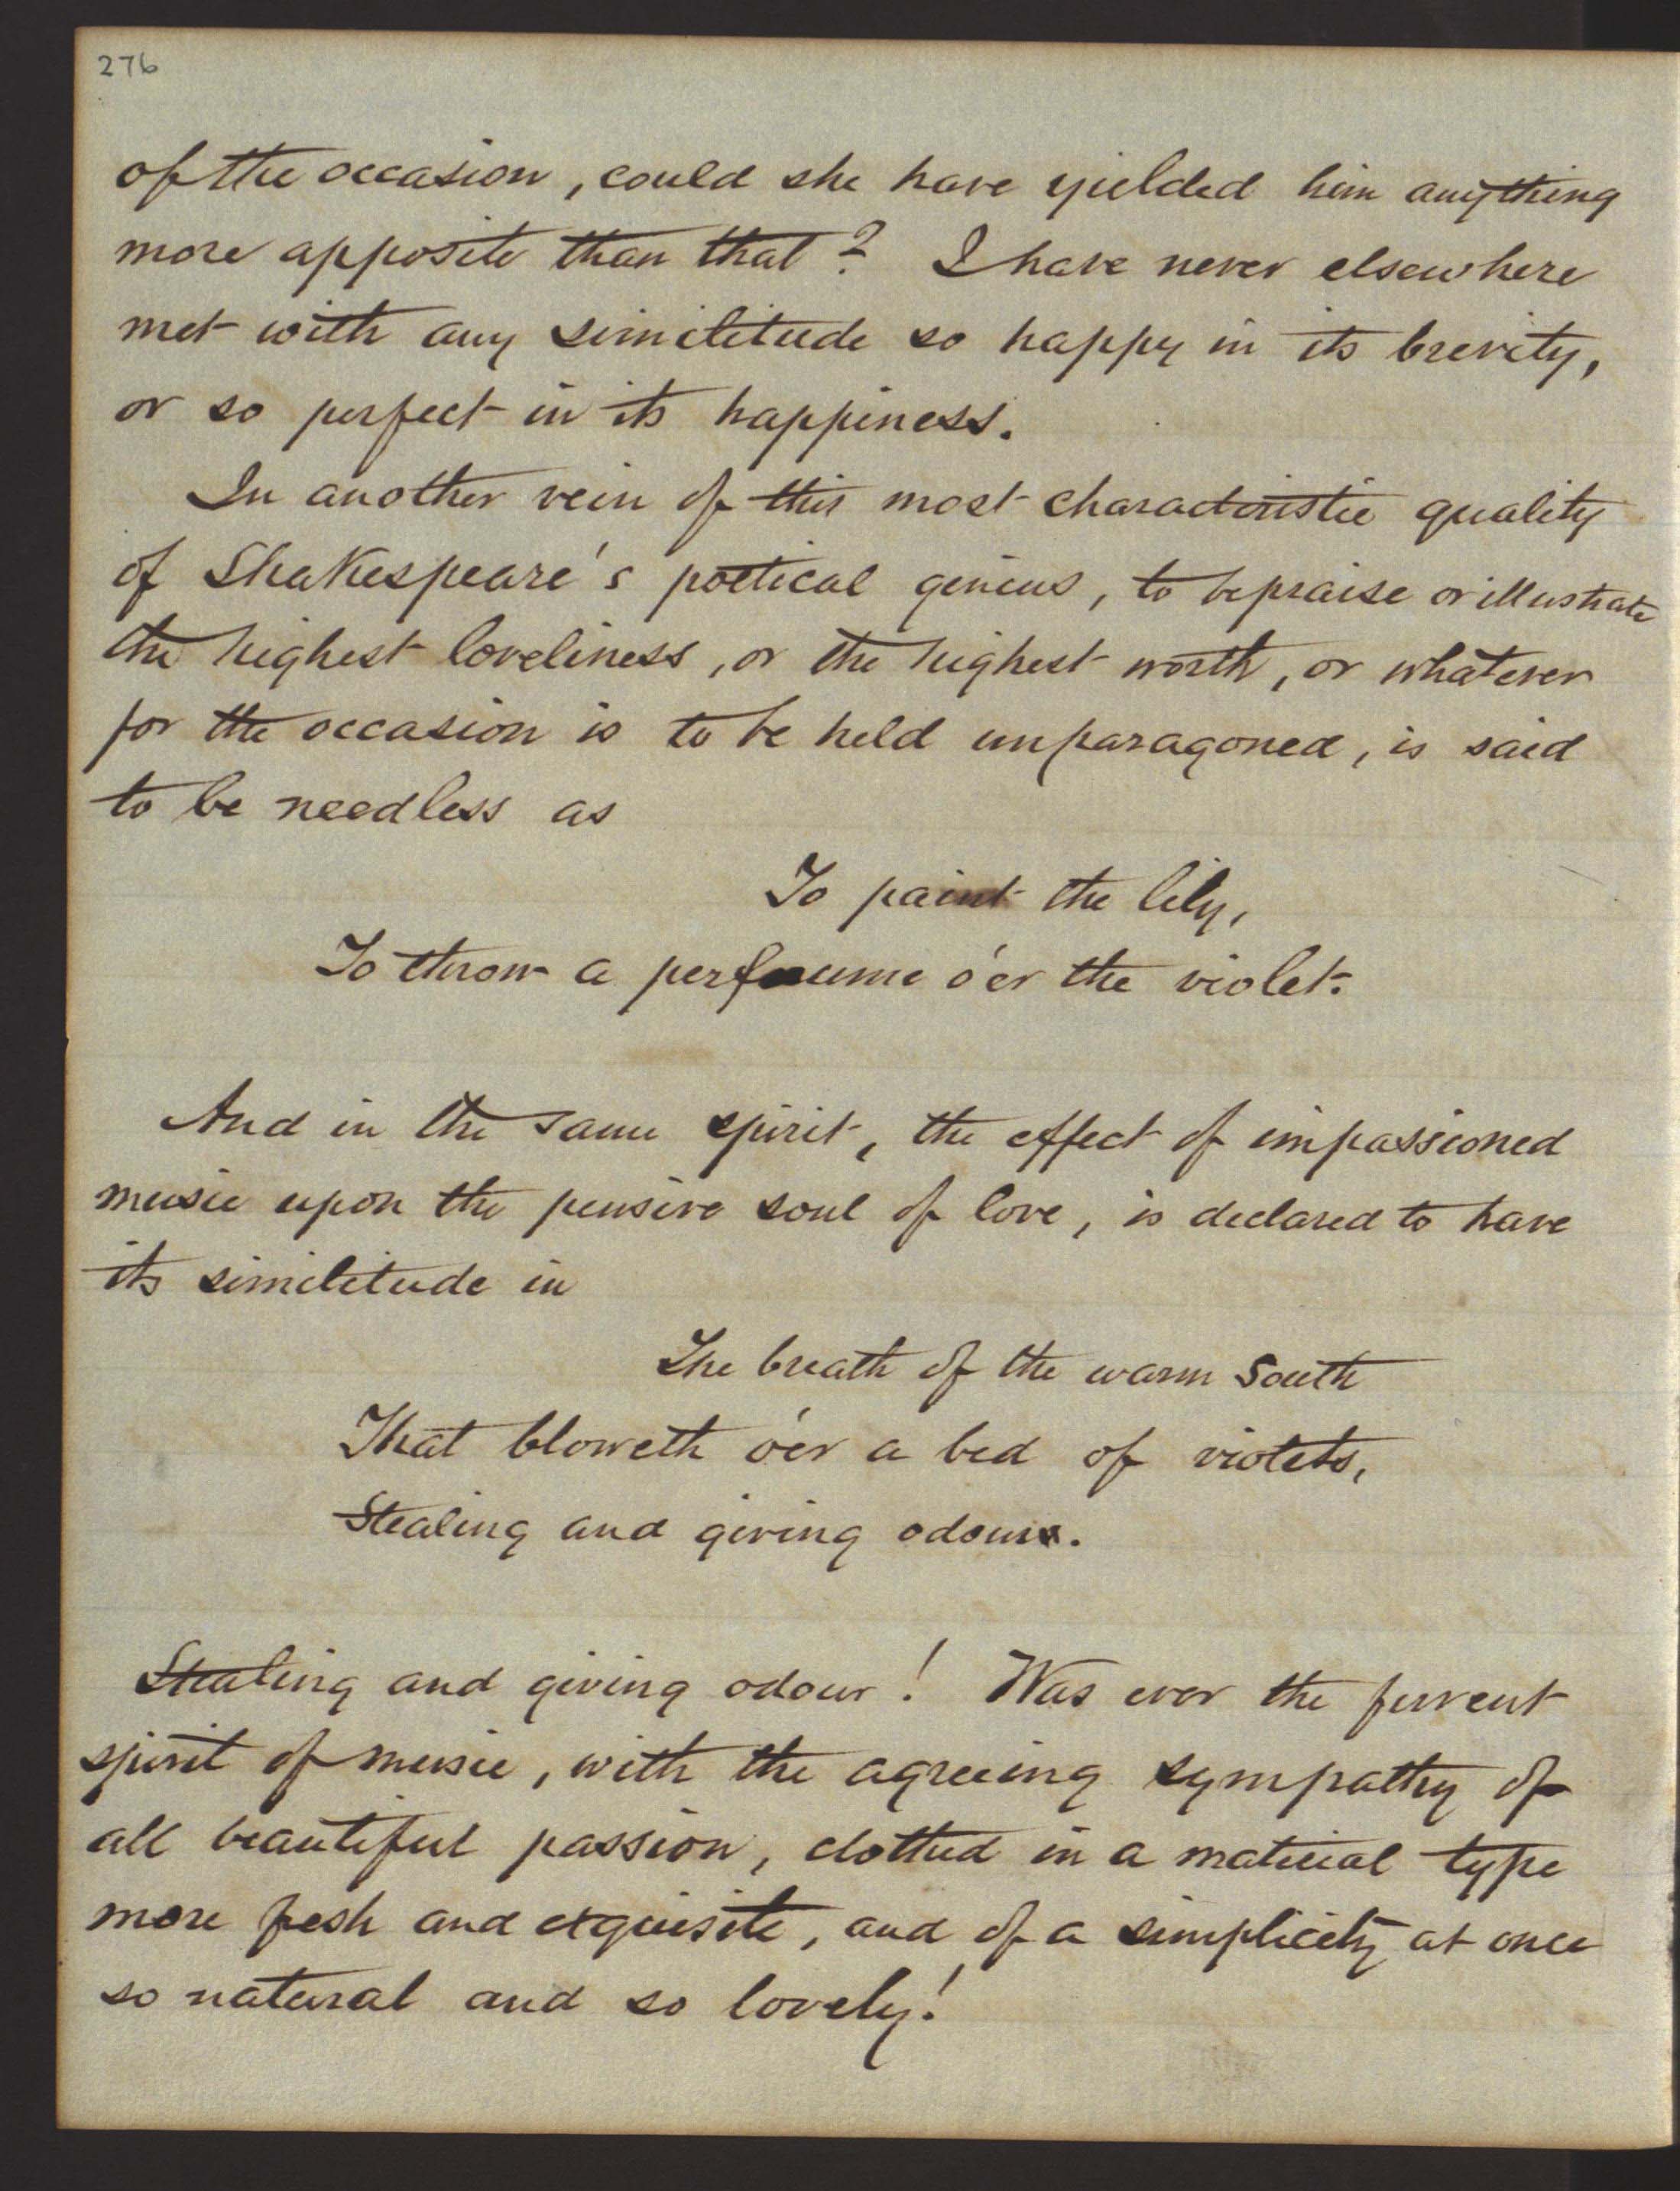 276
of the occasion, could she have yielded him anything
more apposite than that? I have never elsewhere
met with any similitude so happy in its brevity,
or so perfect in its happiness.
In another vein of this most characteristic quality
of Shakespeare's poetical genius, to bepraise or illustrate
the highest loveliness, or the highest worth, or whatever
for the occasion is to be held unparagoned, is said
to be needless as
To paint the lily,
To throw a perfume o'er the violet.
And in the same spirit, the effect of impassioned
music upon the pensive soul of love, is declared to have
its similitude in
The breath of the warm South
That bloweth o'er a bed of violets,
Stealing and giving odour.
Stealing and giving odour! Was ever the fervent
spirit of music, with the agreeing sympathy of
all beautiful passion, clothed in a material type
more fresh and exquisite, and of a simplicity at once
so natural and so lovely!